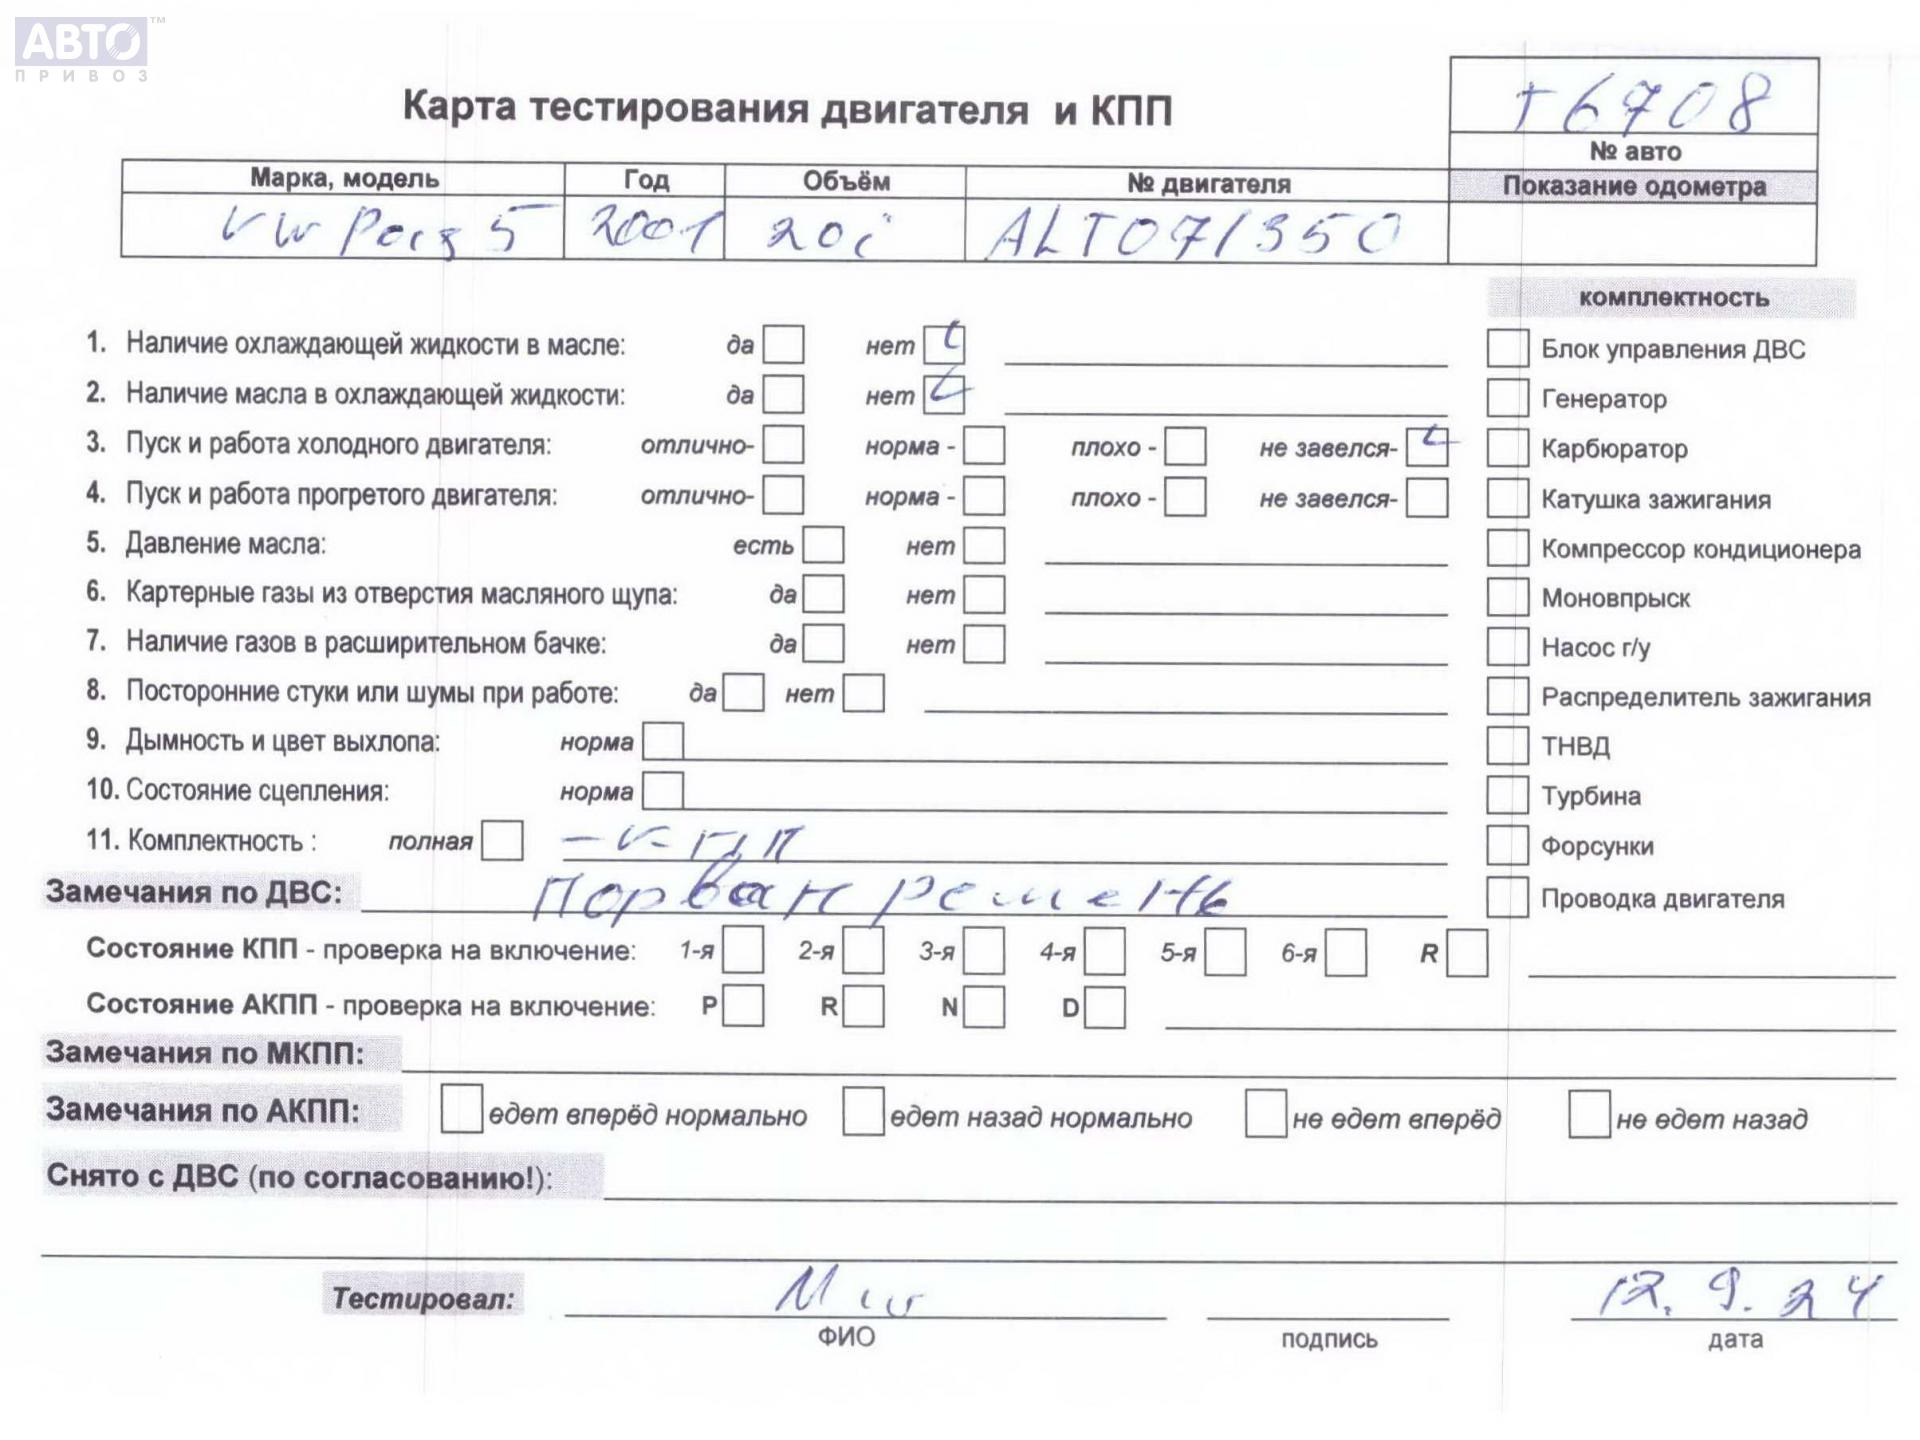 АВТО™
ПРИВОЗ
Т6708
Карта тестирования двигателя и КПП
№ авто
Марка, модель Год Объём № двигателя Показание одометра
VW 5 2001 20i ALT071350
комплектность
1. Наличие охлаждающей жидкости в масле: да нет Блок управления ДВС
2. Наличие масла в охлаждающей жидкости: да нет Генератор
3. Пуск и работа холодного двигателя: отлично- норма - плохо - не завелся- Карбюратор
4. Пуск и работа прогретого двигателя: отлично- норма - плохо - не завелся- Катушка зажигания
5. Давление масла: есть нет Компрессор кондиционера
6. Картерные газы из отверстия масляного щупа: да нет Моновпрыск
7. Наличие газов в расширительном бачке: да нет Насос г/у
8. Посторонние стуки или шумы при работе: да нет Распределитель зажигания
9. Дымность и цвет выхлопа: норма ТНВД
10. Состояние сцепления: норма Турбина
11. Комплектность : полная Форсунки
Замечания по ДВС: Порван ремень Проводка двигателя
Состояние КПП - проверка на включение: 1-я 2-я 3-я 4-я 5-я 6-я R
Состояние АКПП - проверка на включение: P R N D
Замечания по МКПП:
Замечания по АКПП: едет вперёд нормально едет назад нормально не едет вперёд не едет назад
Снято с ДВС (по согласованию!):
Тестировал: 12.9.24
ФИО подпись дата